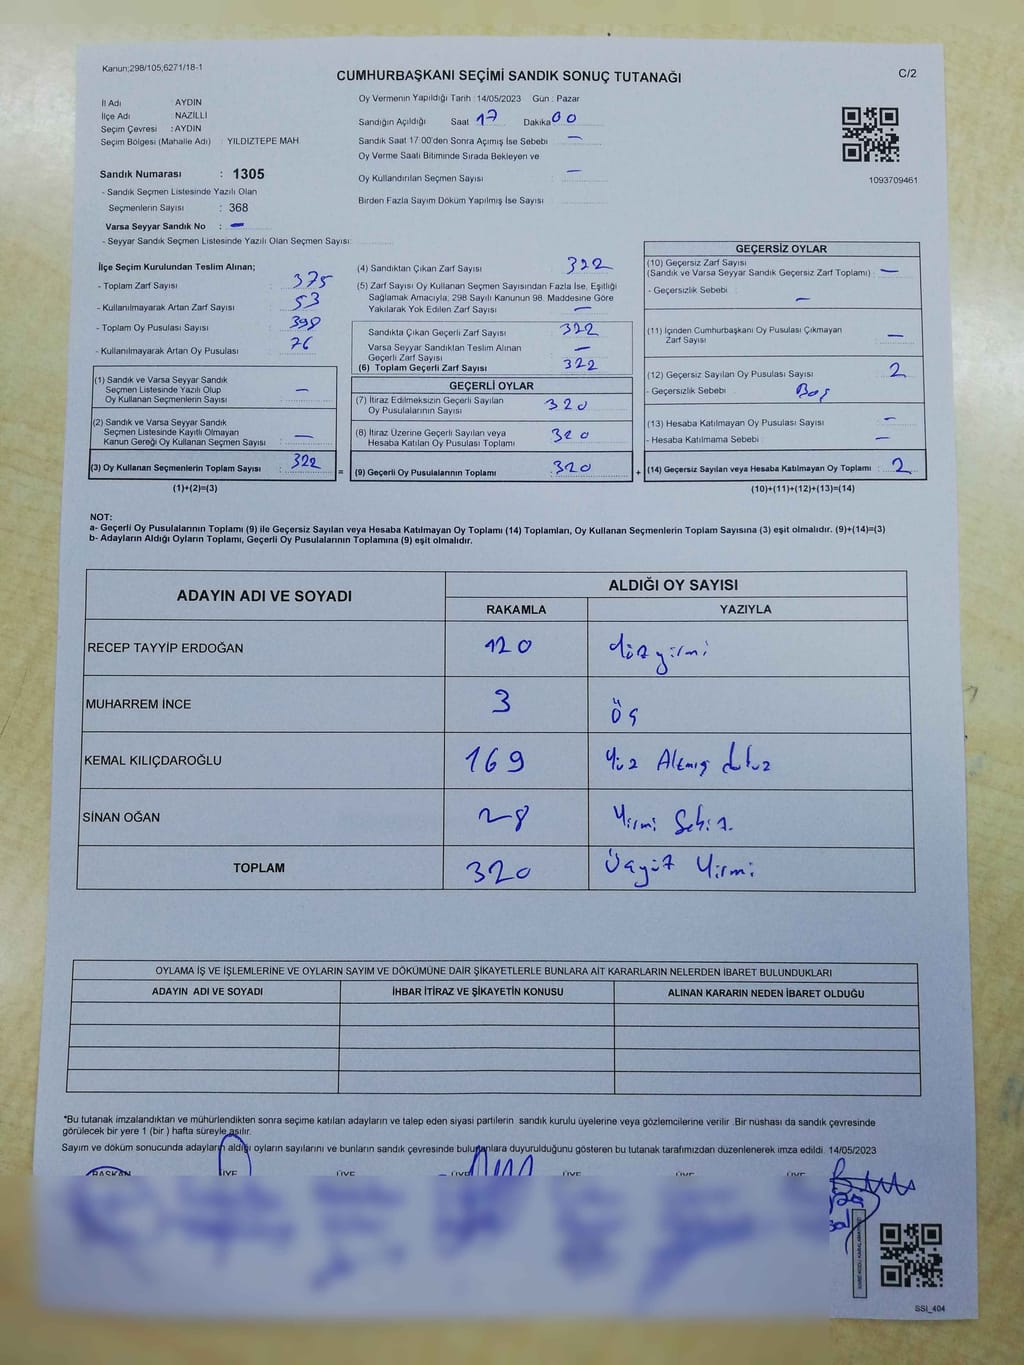 Kanun;298/105,6271/18-1
CUMHURBAŞKANI SEÇİMİ SANDIK SONUÇ TUTANAĞI
C/2
İl Adı : AYDIN
İlçe Adı NAZILLI
Seçim Çevresi : AYDIN
Seçim Bölgesi (Mahalle Adı) : YILDIZTEPE MAH
Sandık Numarası : 1305
- Sandık Seçmen Listesinde Yazılı Olan
Seçmenlerin Sayısı : 368
Varsa Seyyar Sandık No : –
- Seyyar Sandık Seçmen Listesinde Yazılı Olan Seçmen Sayısı:
Oy Vermenin Yapıldığı Tarih : 14/05/2023 Gün : Pazar
Sandığın Açıldığı Saat 17 Dakika 00
Sandık Saat 17:00'den Sonra Açımış İse Sebebi –
Oy Verme Saati Bitiminde Sırada Bekleyen ve
Oy Kullandırılan Seçmen Sayısı –
Birden Fazla Sayım Döküm Yapılmış İse Sayısı
1093709461
İlçe Seçim Kurulundan Teslim Alınan;
- Toplam Zarf Sayısı : 375
- Kullanılmayarak Artan Zarf Sayısı : 53
- Toplam Oy Pusulası Sayısı : 398
- Kullanılmayarak Artan Oy Pusulası : 76
(1) Sandık ve Varsa Seyyar Sandık
Seçmen Listesinde Yazılı Olup
Oy Kullanan Seçmenlerin Sayısı : –
(2) Sandık ve Varsa Seyyar Sandık
Seçmen Listesinde Kayıtlı Olmayan
Kanun Gereği Oy Kullanan Seçmen Sayısı : –
(3) Oy Kullanan Seçmenlerin Toplam Sayısı : 322
(1)+(2)=(3)
=
(4) Sandıktan Çıkan Zarf Sayısı 322
(5) Zarf Sayısı Oy Kullanan Seçmen Sayısından Fazla İse, Eşitliği
Sağlamak Amacıyla; 298 Sayılı Kanunun 98. Maddesine Göre
Yakılarak Yok Edilen Zarf Sayısı –
Sandıkta Çıkan Geçerli Zarf Sayısı 322
Varsa Seyyar Sandıktan Teslim Alınan
Geçerli Zarf Sayısı –
(6) Toplam Geçerli Zarf Sayısı 322
GEÇERLİ OYLAR
(7) İtiraz Edilmeksizin Geçerli Sayılan
Oy Pusulalarının Sayısı 320
(8) İtiraz Üzerine Geçerli Sayılan veya
Hesaba Katılan Oy Pusulası Toplamı 320
(9) Geçerli Oy Pusulalarının Toplamı 320
+
GEÇERSİZ OYLAR
(10) Geçersiz Zarf Sayısı
(Sandık ve Varsa Seyyar Sandık Geçersiz Zarf Toplamı) : –
- Geçersizlik Sebebi :
–
(11) İçinden Cumhurbaşkanı Oy Pusulası Çıkmayan
Zarf Sayısı : –
(12) Geçersiz Sayılan Oy Pusulası Sayısı : 2
- Geçersizlik Sebebi : Boş
(13) Hesaba Katılmayan Oy Pusulası Sayısı : –
- Hesaba Katılmama Sebebi : –
(14) Geçersiz Sayılan veya Hesaba Katılmayan Oy Toplamı : 2
(10)+(11)+(12)+(13)=(14)
NOT:
a- Geçerli Oy Pusulalarının Toplamı (9) ile Geçersiz Sayılan veya Hesaba Katılmayan Oy Toplamı (14) Toplamları, Oy Kullanan Seçmenlerin Toplam Sayısına (3) eşit olmalıdır. (9)+(14)=(3)
b- Adayların Aldığı Oyların Toplamı, Geçerli Oy Pusulalarının Toplamına (9) eşit olmalıdır.
ADAYIN ADI VE SOYADI
ALDIĞI OY SAYISI
RAKAMLA YAZIYLA
RECEP TAYYİP ERDOĞAN 120 yüzyirmi
MUHARREM İNCE 3 Üç
KEMAL KILIÇDAROĞLU 169 Yüz Altmış dokuz
SİNAN OĞAN 28 Yirmi Sekiz
TOPLAM 320 Üçyüz Yirmi
OYLAMA İŞ VE İŞLEMLERİNE VE OYLARIN SAYIM VE DÖKÜMÜNE DAİR ŞİKAYETLERLE BUNLARA AİT KARARLARIN NELERDEN İBARET BULUNDUKLARI
ADAYIN ADI VE SOYADI İHBAR İTİRAZ VE ŞİKAYETİN KONUSU ALINAN KARARIN NEDEN İBARET OLDUĞU
*Bu tutanak imzalandıktan ve mühürlendikten sonra seçime katılan adayların ve talep eden siyasi partilerin sandık kurulu üyelerine veya gözlemcilerine verilir .Bir nüshası da sandık çevresinde
görülecek bir yere 1 (bir ) hafta süreyle asılır.
Sayım ve döküm sonucunda adayların aldığı oyların sayılarını ve bunların sandık çevresinde bulunanlara duyurulduğunu gösteren bu tutanak tarafımızdan düzenlenerek imza edildi. 14/05/2023
BAŞKAN ÜYE ÜYE ÜYE ÜYE ÜYE ÜYE
SSI_404